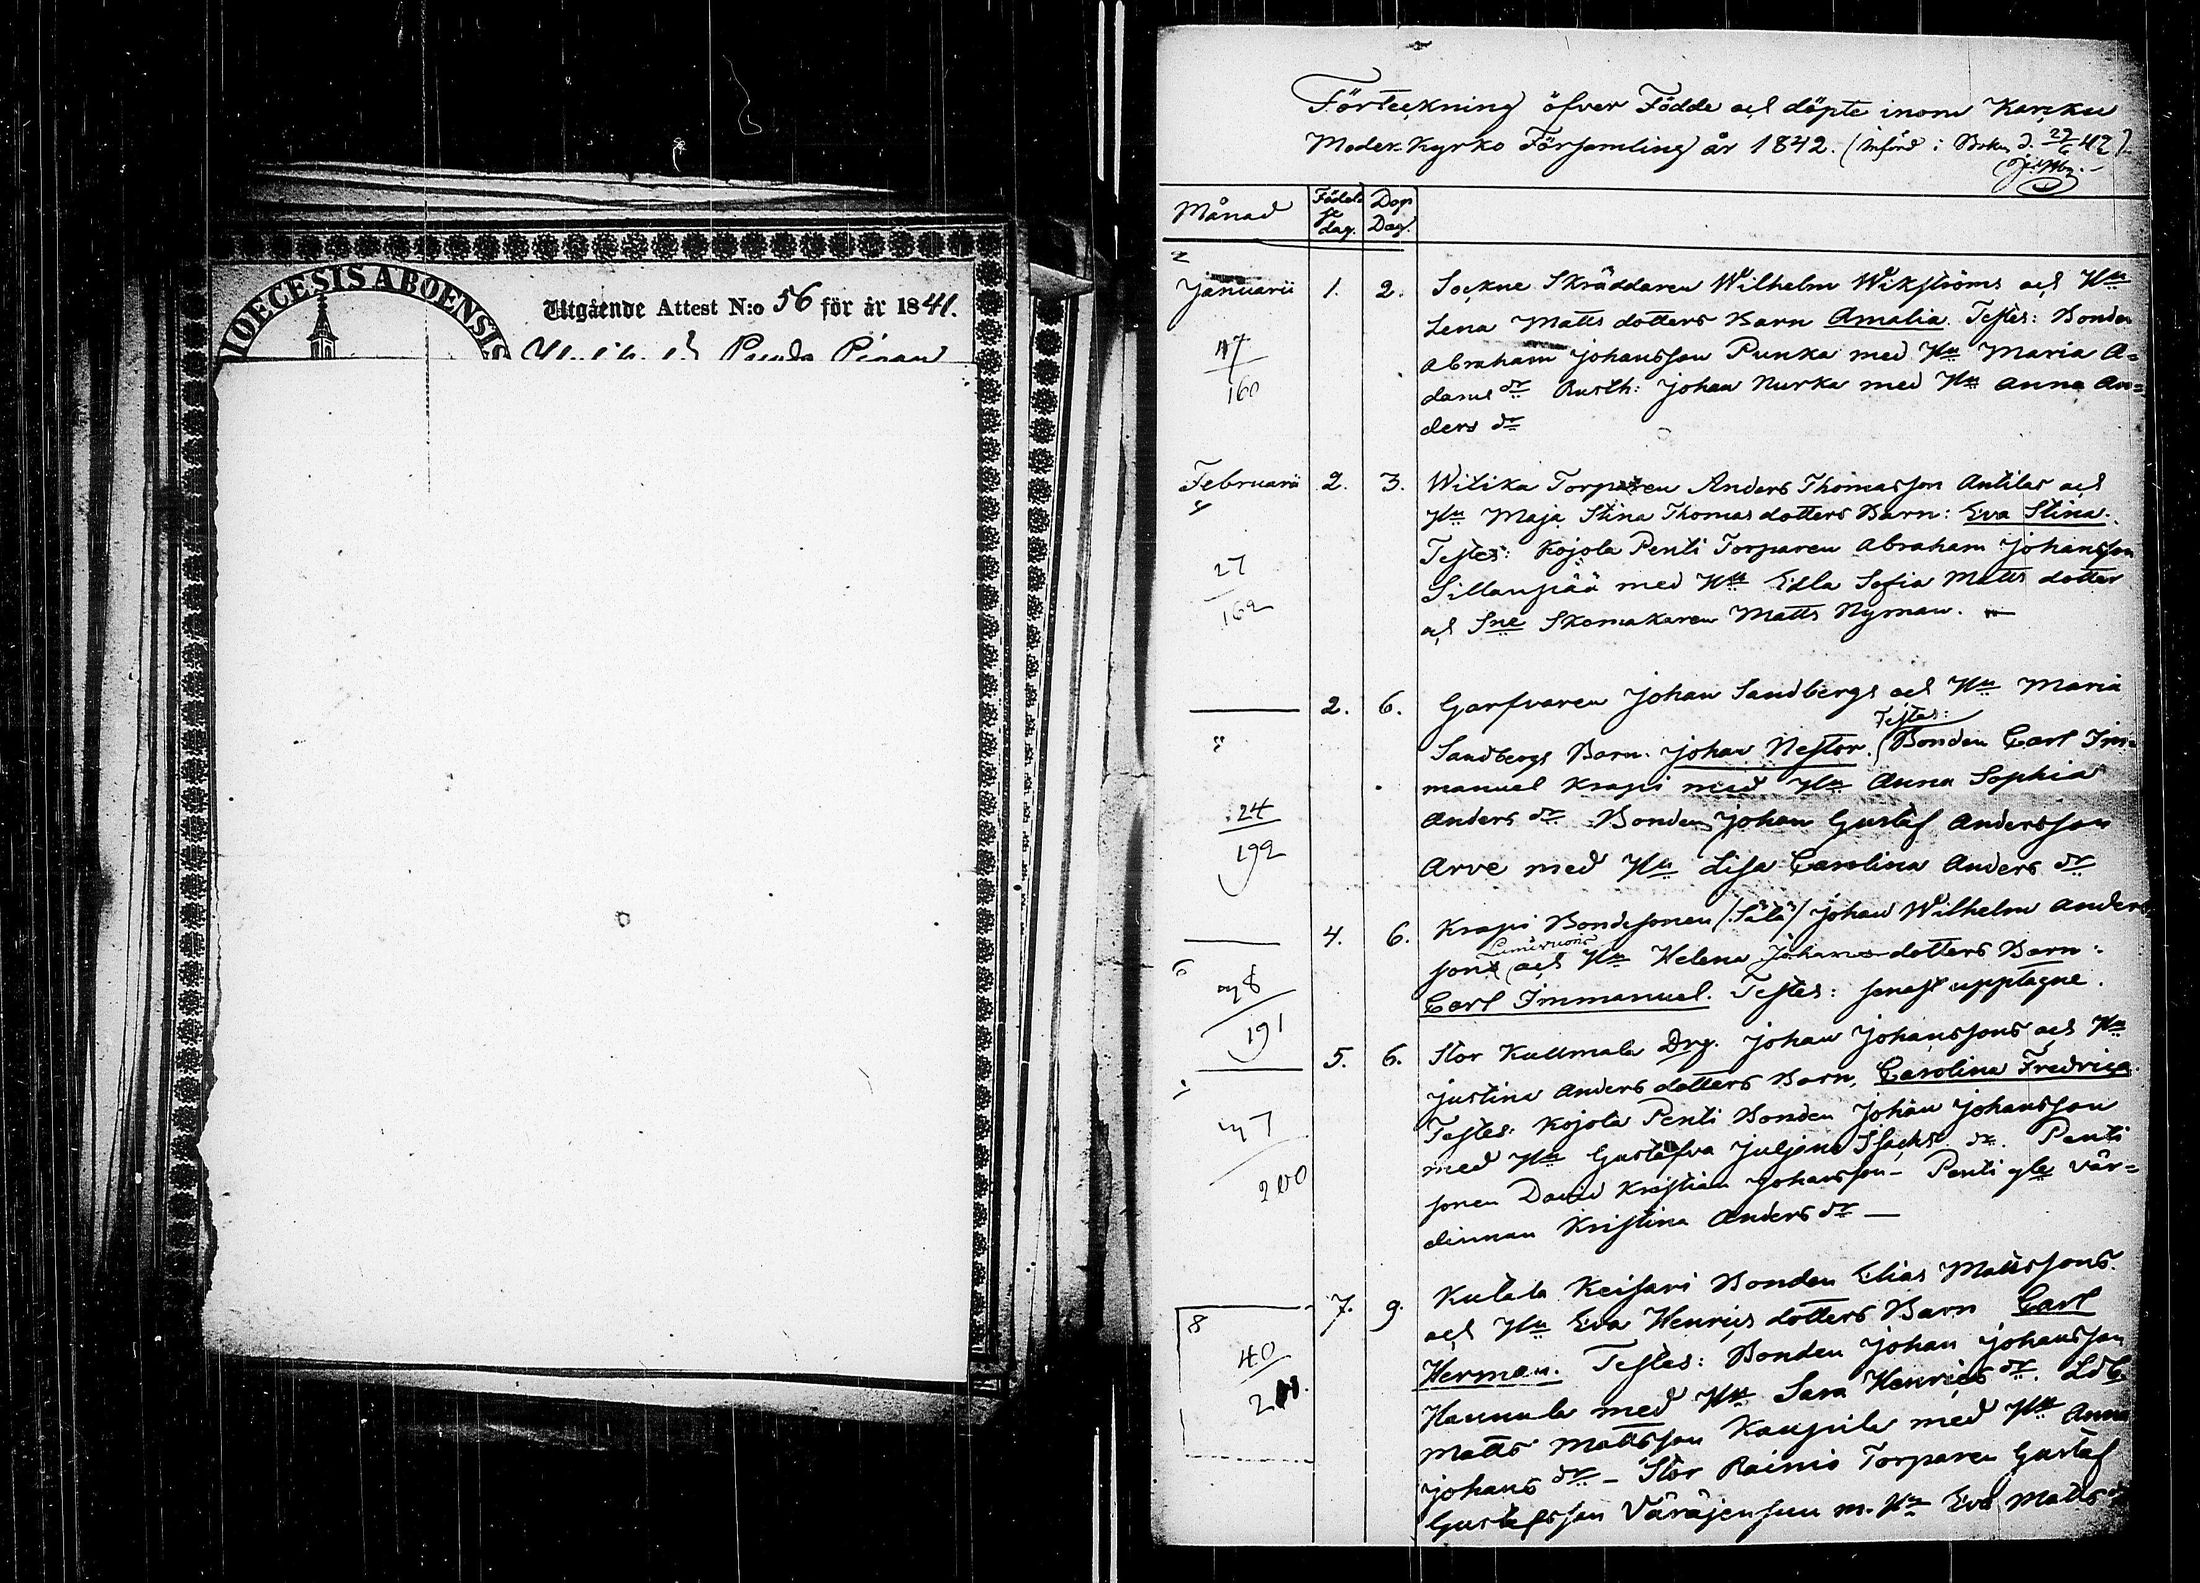 DIOECESIS ABOENSIS
Utgående Attest N:o 56 för år 1841.
Förteckning öfver Födde och döpte inom Karkku
Moder Kyrko Församling år 1842. (Införd i Boken d. 29/6 42).
Månad
Födelse dag.
Dop Dag.
2
Januarii 1. 2. Sockne Skräddaren Wilhelm Wikströms och Hu
Lena Matts dotters Barn Amalia. Testes: Bonden
Abraham Johansson Punka med Hu Maria A=
dams dr Rusth: Johan Nurka med Hu Anna An=
ders dr
47
160
Februarii 2. 3. Witika Torparen Anders Thomasson Antilas och
4
Hu Maja Stina Thomas dotters Barn: Eva Stina.
Testes: Kojola Penti Torparen Abraham Johansson
Sillanpää med Hu Edla Sofia Matts dotter
och Sne Skomakaren Matts Nyman.
27
162
2. 6. Garfvaren Johan Sandbergs och Hu Maria
Testes:
Sandbergs Barn: Johan Nestor. (Bonden Carl Im=
manuel Krapi med Hu Anna Sophia
Anders dr Bonden Johan Gustaf Andersson
Arve med Hu Lisa Carolina Anders dr
24
192
4. 6. Krapi Bondesonen /:Sälä:/ Johan Wilhelm Anders
sons och Hu Helena Johans dotters Barn:
Carl Immanuel. Testes: senast upptagne.
6
28
191
5. 6. Stor Kullmala Drg. Johan Johanssons och Hu
Justina Anders dotters Barn, Carolina Fredrica.
Testes: Kojola Penti Bonden Johan Johansson
med Hu Gustafva Juljana Isacks dr. Penti
sonen David Kristian Johansson - Penti gle vär=
dinnan Kristina Anders dr —
27
200
7. 9. Kutala Keisari Bonden Elias Mattssons
och Hu Eva Henrics dotters Barn Carl
Herman. Testes: Bonden Johan Johansson
Hannula med Hu Sara Henrics dr. Ldb.
Matts Mattsson Kaupila med Hu Anna
Johans dr - Stor Rainio Torparen Gustaf
Gustafsson Väräjensuu m. Hu Eva Matts dr
8
40